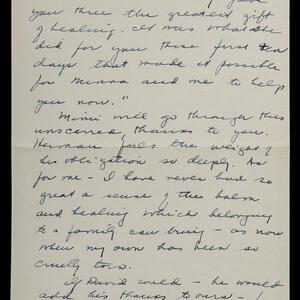 you three the greatest gift
of healing. It was what she
did for you those first ten
days that made it possible
for Minna and me to help
you now."
Mimi will go through this
unscarred, thanks to you.
Herman feels the weight of
his obligation so deeply. As
for me - I have never had so
great a sense of the balm
and healing which belonging
to a family can bring - as now
when my own has been so
cruelly torn.
If David could - he would
add his thanks to ours -